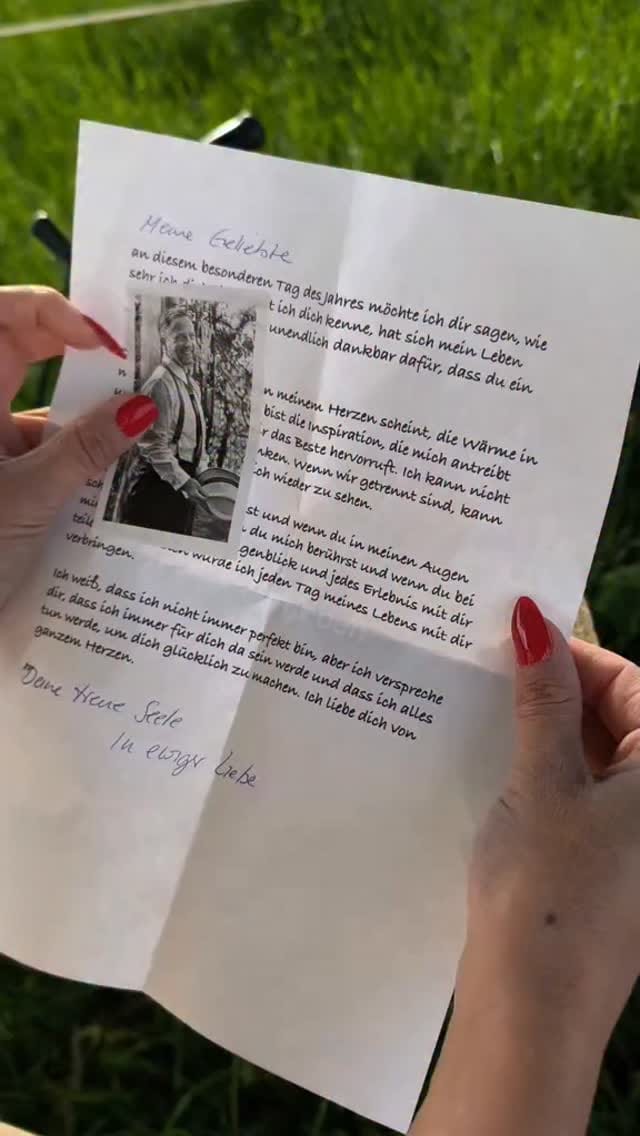 Meine Geliebte
an diesem besonderen Tag des Jahres möchte ich dir sagen, wie
sehr ich t ich dich kenne, hat sich mein Leben
unendlich dankbar dafür, dass du ein
n meinem Herzen scheint, die Wärme in
bist die Inspiration, die mich antreibt
r das Beste hervorruft. Ich kann nicht
nken. Wenn wir getrennt sind, kann
ich wieder zu sehen.
sch st und wenn du in meinen Augen
mi du mich berührst und wenn du bei
teil genblick und jedes Erlebnis mit dir
würde ich jeden Tag meines Lebens mit dir
verbringen.
Ich weiß, dass ich nicht immer perfekt bin, aber ich verspreche
dir, dass ich immer für dich da sein werde und dass ich alles
tun werde, um dich glücklich zu machen. Ich liebe dich von
ganzem Herzen.
Deine treue Seele
In ewiger Liebe